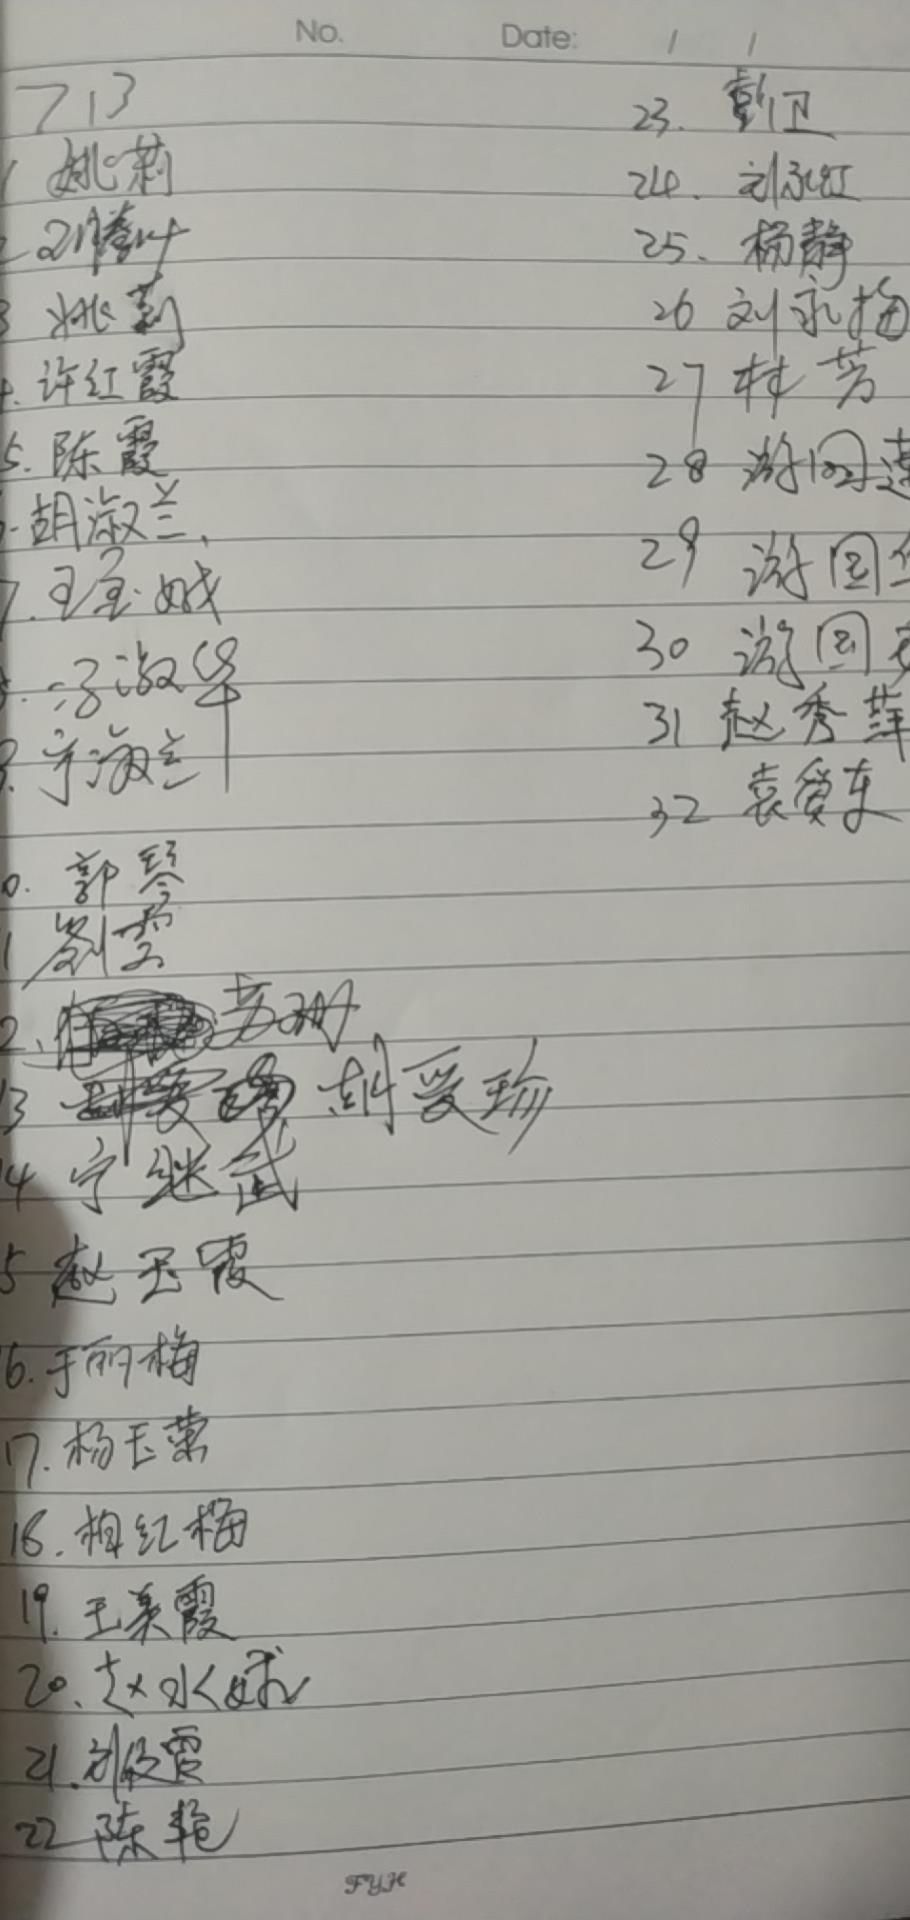 No. Date: / /
713
1 姚莉
2
3 姚莉
4. 许红霞
5. 陈霞
胡淑兰
7. 王玉娥
淑华
9. 宁淑兰
10. 郭琴
11 刘雲
12. 苏珊
13 胡爱珍
14 宁继武
15 赵玉霞
16. 于丽梅
17. 杨玉荣
18. 梅红梅
19. 王美霞
20. 赵水娥
21. 刘俊霞
22 陈艳
23. 彭卫
24. 刘永红
25. 杨静
26 刘永梅
27 林芳
28 游国莲
29 游国
30 游国
31 赵秀萍
32 袁爱东
FYH